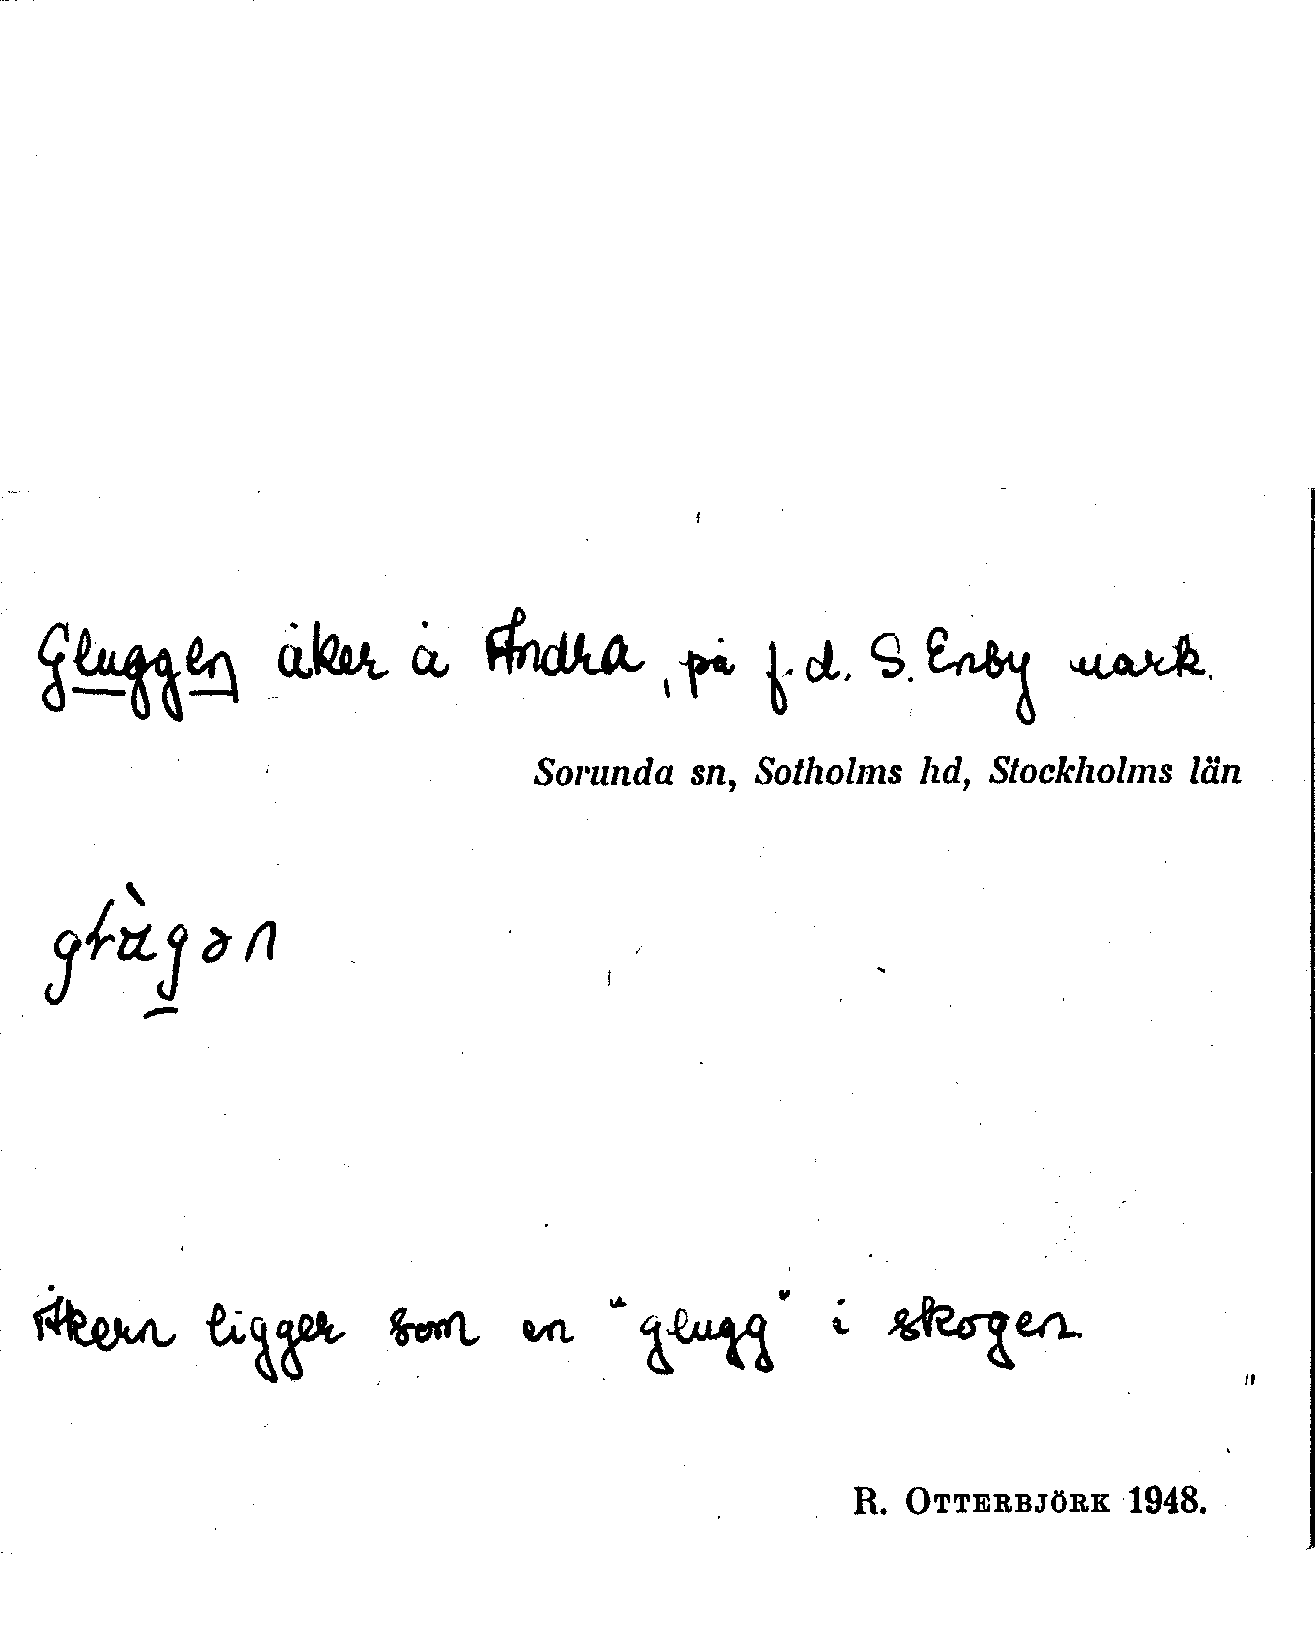 Gluggen åker å Åndra, på f.d. S. Enby mark.
Sorunda sn, Sotholms hd, Stockholms län
Åkern ligger som en "glugg" i skogen
R. OTTERBJÖRK 1948.